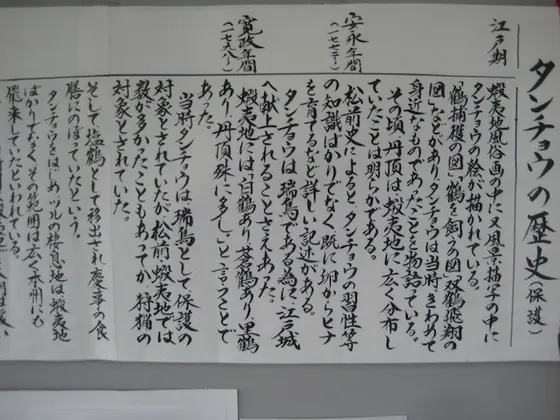 タンチョウの歴史(保護)
江戸期
蝦夷地風俗画の中に又風景描写の中に
タンチョウの絵が描かれている。
「鶴捕獲の図」「鶴を飼う図」「双鶴飛翔の
図」などがあり、タンチョウは当時きわめて
身近なものであったことを物語っている。
その頃、丹頂は蝦夷地に広く分布し
ていたことは明らかである。
安永年間
(一七七二〜)
松前史によると、タンチョウの習性等
の知識ばかりでなく既に卵からヒナ
を育てるなど詳しい記述がある。
タンチョウは瑞鳥である為に、江戸城
へ献上されることさえあった。
寛政年間
(一七九八〜)
蝦夷地には、「白鶴あり、蒼鶴あり、黒鶴
あり、丹頂殊に多し」と言うことで
あった。
当時タンチョウは瑞鳥として保護の
対象とされていたが、松前、蝦夷地では
数が多かったこともあってか、狩猟の
対象とされていた。
そして塩鶴として移出され慶事の食
膳にのぼっていたという。
タンチョウをはじめツルの棲息地は蝦夷地
ばかりでなく、その範囲は広く本州にも
飛来していたといわれている。